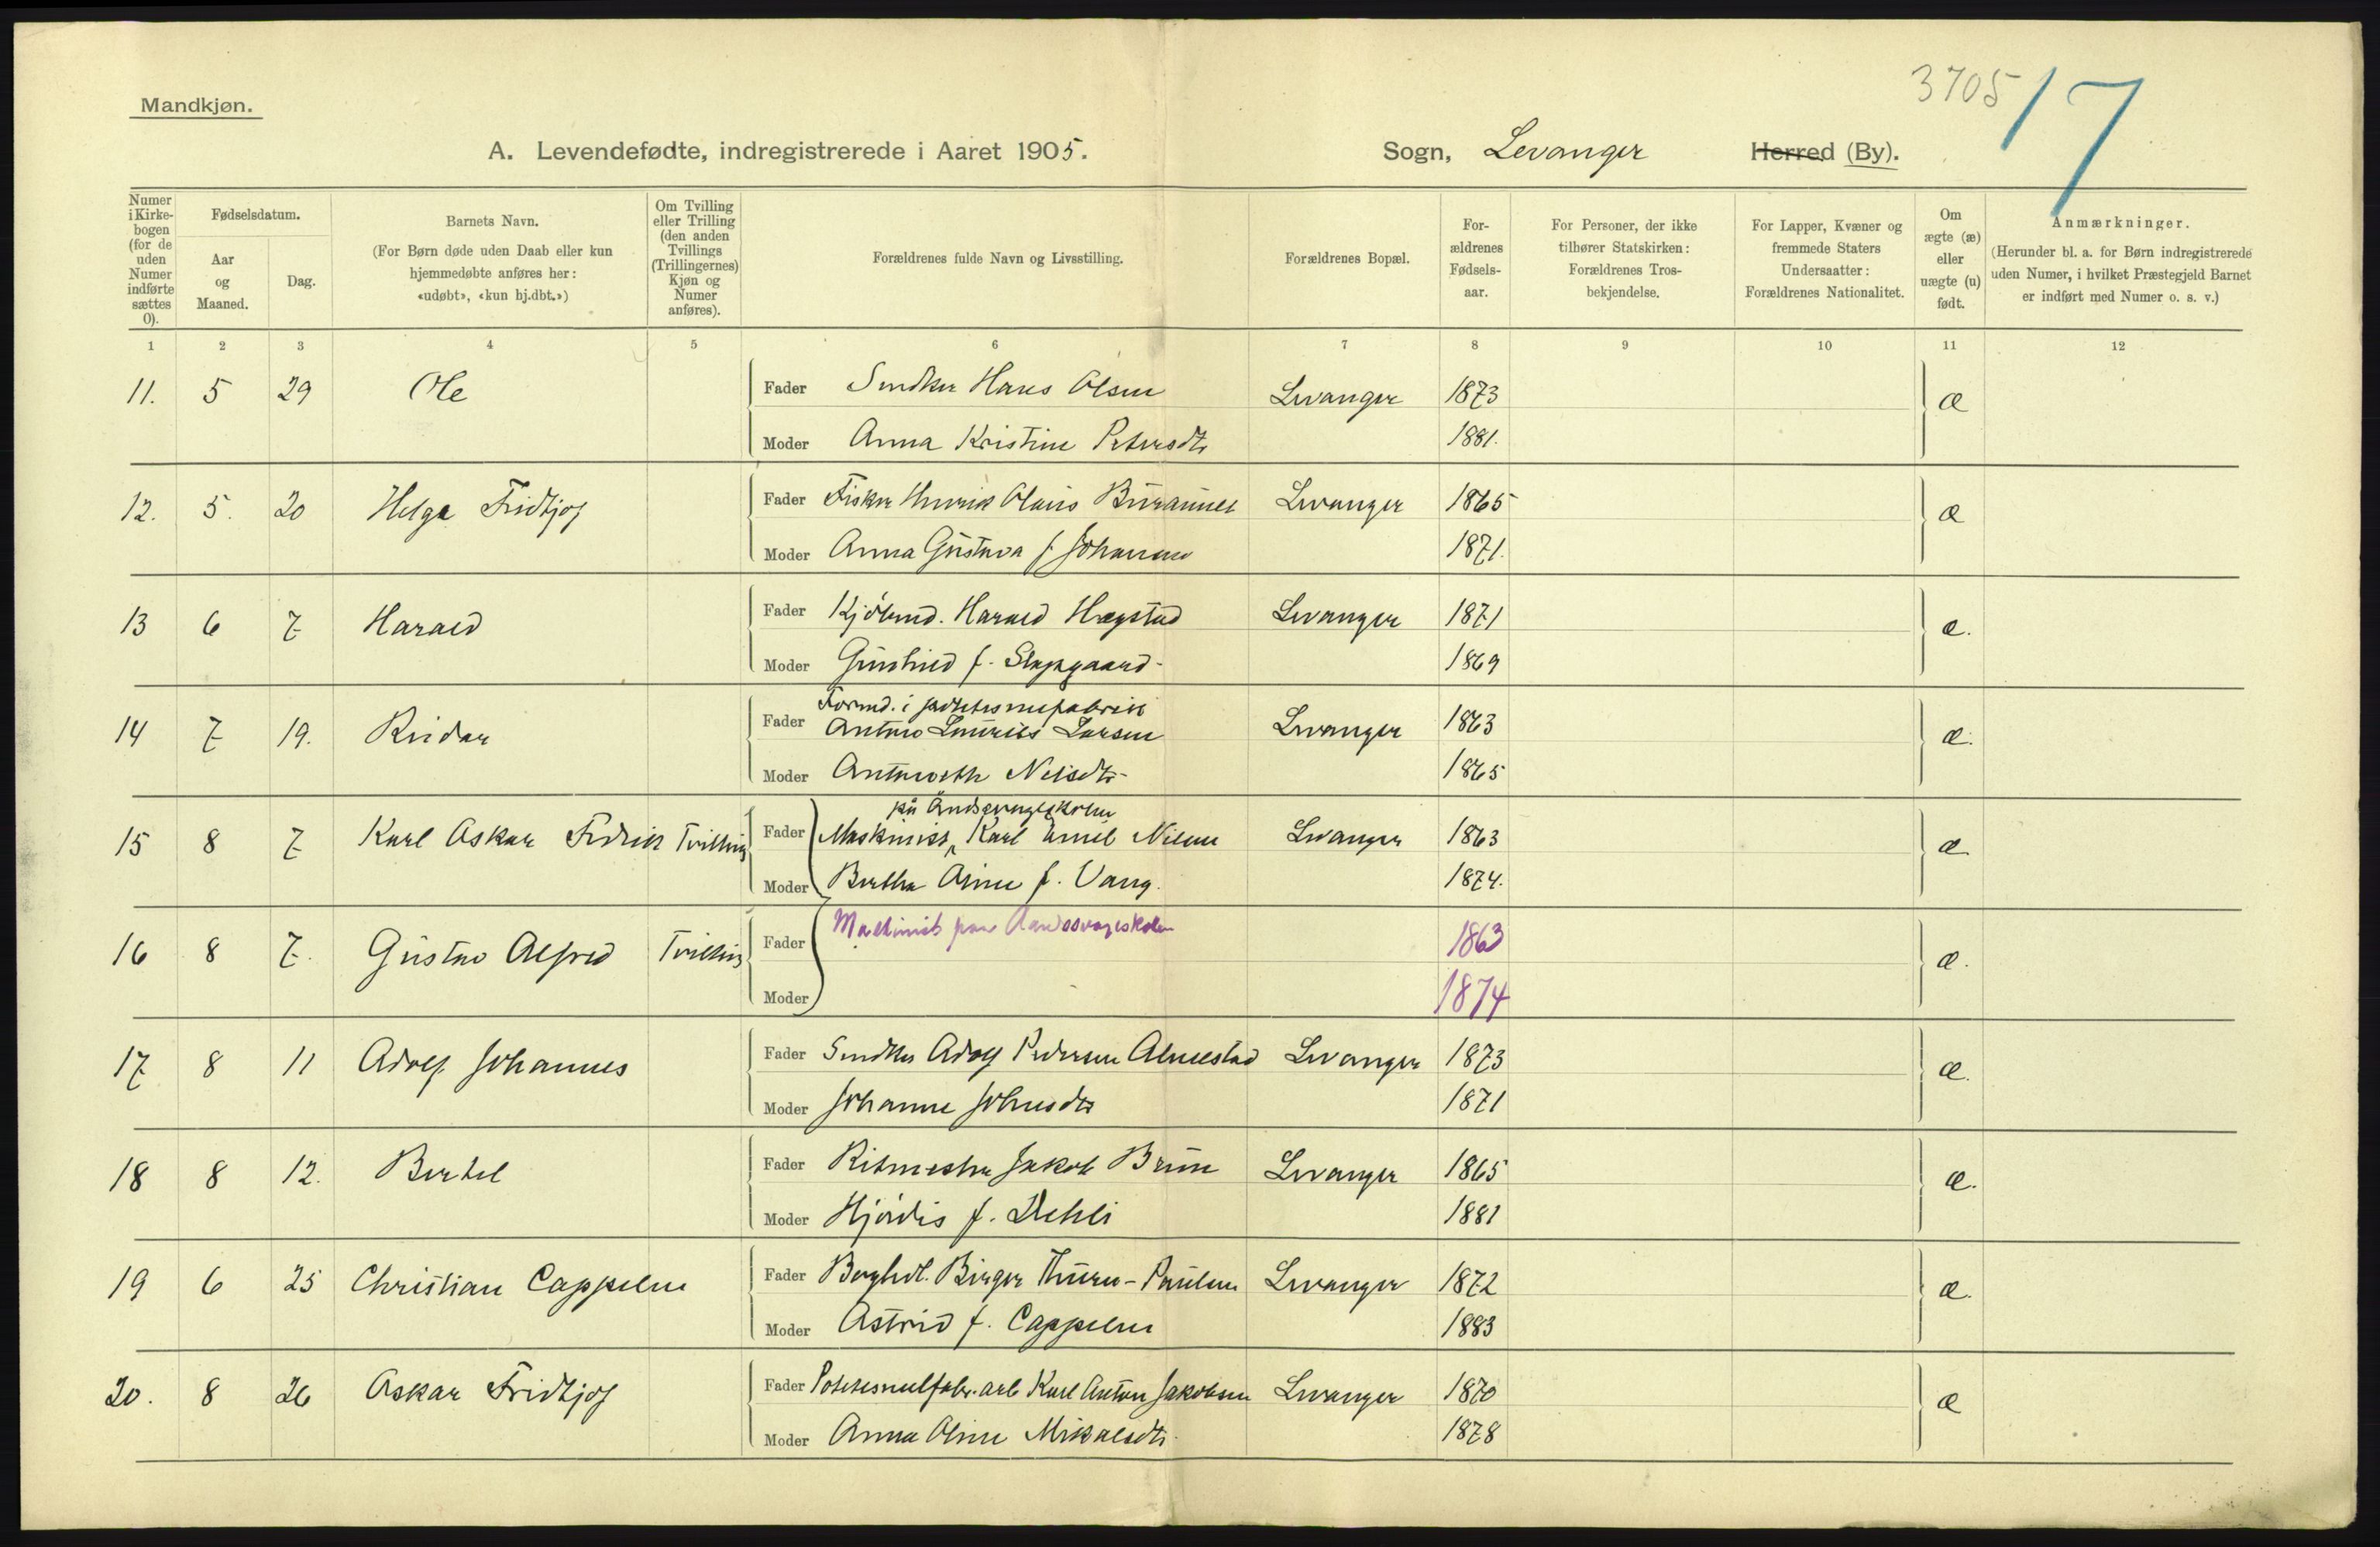 3705 17
Mandkjøn.
A. Levendefødte, indregistrerede i Aaret 1905. Sogn, Levanger Herred (By).
Numer i Kirke- bogen (for de uden Numer indførte sættes 0).
Fødselsdatum.
Aar og Maaned.
Dag.
Barnets Navn.
(For Børn døde uden Daab eller kun
hjemmedøbte anføres her:
«udøbt», «kun hj.dbt.»)
Om Tvilling
eller Trilling
(den anden
Tvillings
(Trillingernes)
Kjøn og
Numer
anføres).
Forældrenes fulde Navn og Livsstilling.
Forældrenes Bopæl.
For-
ældrenes
Fødsels-
aar.
For Personer, der ikke
tilhører Statskirken:
Forældrenes Tros-
bekjendelse.
For Lapper, Kvæner og
fremmede Staters
Undersaatter:
Forældrenes Nationalitet.
Om
ægte (æ)
eller
uægte (u)
født.
Anmærkninger.
(Herunder bl. a. for Børn indregistrerede
uden Numer, i hvilket Præstegjeld Barnet
er indført med Numer o. s. v.)
1 2 3 4 5 6 7 8 9 10 11 12
11. 5 29 Ole Fader Snedker Hans Olsen Levanger 1873 æ
Moder Anna Kristine Petersdtr 1881.
12. 5. 20 Helge Fridtjof Fader Fisker Henrik Olaus Levanger 1865 æ
Moder Anna Gustava f. Johansen 1871.
13 6 7 Harald Fader Kjøbmd. Harald Hægstad Levanger 1871 æ.
Moder Gunhild f. 1869
14 7 19. Reidar Fader Formd. i potetesmelfabrik
Anton Laurits Larsen Levanger 1863 æ.
Moder Nelsdtr 1865
15 8 7 Karl Askar Fredrik Tvilling Fader på Åndssvageskolen
Maskinist Karl Emil Nilsen Levanger 1863 æ
Moder Bertha Arine f. Vang. 1874.
16 8 7. Gustav Alfred Tvilling Fader Maskinist paa Aandssvageskolen 1863 æ.
Moder 1874
17 8 11 Adolf Johannes Fader Snedker Adolf Pedersen Levanger 1873 æ.
Moder Johanne Johnsdtr 1871
18 8 12. Bertel Fader Ritmester Jakob Brun Levanger 1865 æ.
Moder Hjördis f. Dehli 1881
19 6 25 Christian Cappelen Fader Boghdl. Birger Thurn-Paulsen Levanger 1872 æ.
Moder Astrid f. Cappelen 1883
20. 8 26 Askar Fridtjof Fader Potetesmelfabr. arb Karl Anton Jakobsen Levanger 1870 æ
Moder Anna Oline Mikalsdtr. 1878